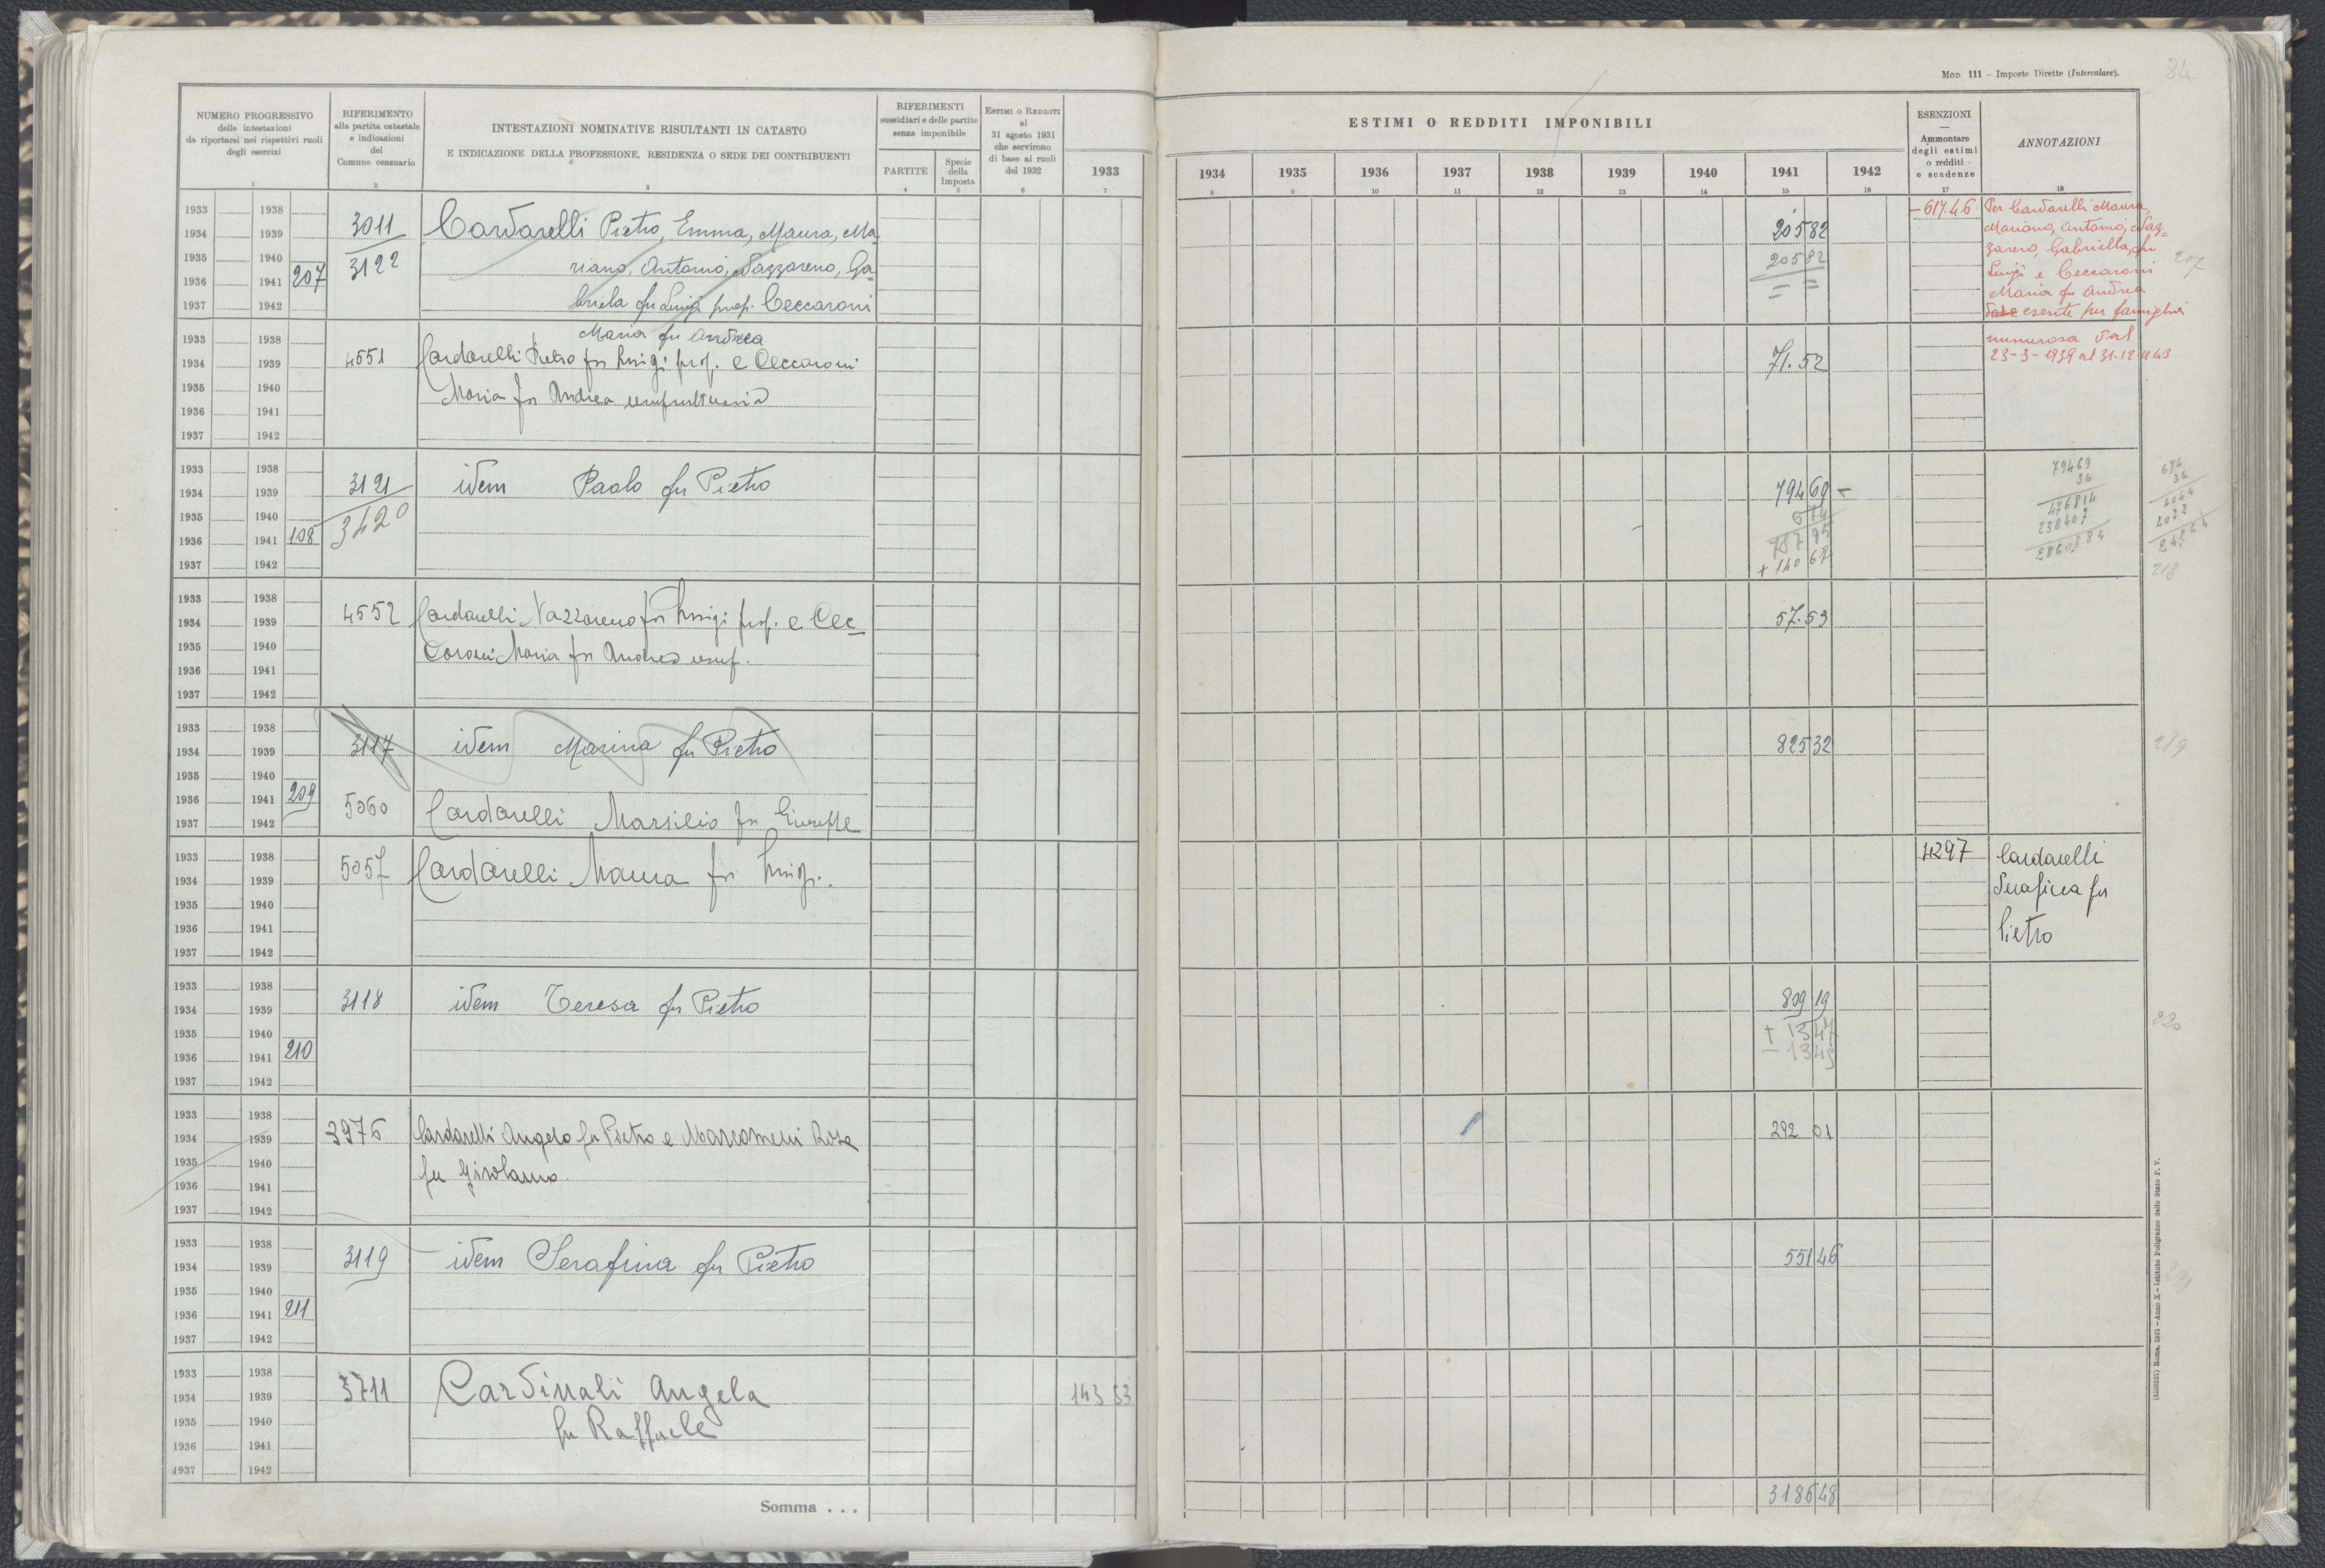 Mod. 111 - Imposte Dirette (Intercalare).
84
NUMERO PROGRESSIVO
delle intestazioni
da riportarsi nei rispettivi ruoli
degli esercizi
RIFERIMENTO
alla partita catastale
e indicazioni
del
Comune censuario
INTESTAZIONI NOMINATIVE RISULTANTI IN CATASTO
E INDICAZIONE DELLA PROFESSIONE, RESIDENZA O SEDE DEI CONTRIBUENTI
RIFERIMENTI
sussidiari e delle partite
senza imponibile
PARTITE
Specie
della
Imposta
Estimi o Redditi
al
31 agosto 1931
che servirono
di base ai ruoli
del 1932
ESTIMI O REDDITI IMPONIBILI
1933 1934 1935 1936 1937 1938 1939 1940 1941 1942
ESENZIONI
Ammontare
degli estimi
o redditi
e scadenze
ANNOTAZIONI
1 2 3 4 5 6 7 8 9 10 11 12 13 14 15 16 17 18
1933 1938
1934 1939
1935 1940
1936 1941 207
1937 1942
3011
3122
Cardarelli Pietro, Emma, Maura, Ma=
riano, Antonio, Nazzareno, Ga=
briela fu Luigi prop. Ceccaroni
Maria fu Andrea
205 82
205 82
- 617.46
Per Cardarelli Maura,
Mariano, Antonio, Naz=
zareno, Gabriella, fu
Luigi e Ceccaroni
Maria fu Andrea
esente per famiglia
numerosa dal
23-3-1939 al 31.12.1943
217
1933 1938
1934 1939
1935 1940
1936 1941
1937 1942
4551
Cardarelli Pietro fu Luigi prop. e Ceccaroni
Maria fu Andrea usufruttuaria
71.52
1933 1938
1934 1939
1935 1940
1936 1941 108
1937 1942
3121
3420
idem Paolo fu Pietro
794 69 -
6 74
787 95
+ 140 67
79469
36
476814
238407
2860884
674
36
4044
2022
24264
218
1933 1938
1934 1939
1935 1940
1936 1941
1937 1942
4552
Cardarelli Nazzareno fu Luigi prop. e Cec=
caroni Maria fu Andrea usuf.
57.53
1933 1938
1934 1939
1935 1940
1936 1941 209
1937 1942
3117
idem Marina fu Pietro
825 32
219
5060
Cardarelli Marsilio fu Giuseppe
1933 1938
1934 1939
1935 1940
1936 1941
1937 1942
5057
Cardarelli Maura fu Luigi.
4297
Cardarelli
Serafina fu
Pietro
1933 1938
1934 1939
1935 1940
1936 1941 210
1937 1942
3118
idem Teresa fu Pietro
809 19
+ 13 47
- 13 49
220
1933 1938
1934 1939
1935 1940
1936 1941
1937 1942
3976
Cardarelli Angelo fu Pietro e Marcomeni Rosa
fu Girolamo.
292 01
1933 1938
1934 1939
1935 1940
1936 1941 211
1937 1942
3119
idem Serafina fu Pietro
551 46
1933 1938
1934 1939
1935 1940
1936 1941
1937 1942
3711
Cardinali Angela
fu Raffaele
143 53
Somma . . .
3186 48
Roma, 1931 - Anno X - Istituto Poligrafico dello Stato P. V.